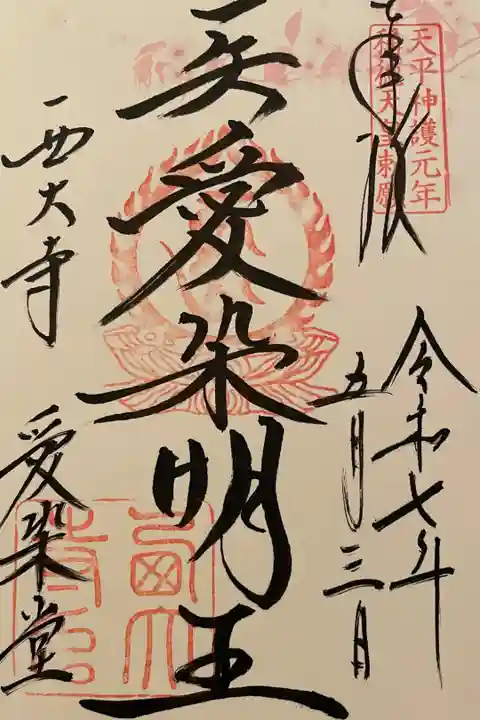 奉拝
天平神護元年
稱徳天皇勅願
令和七年
五月三日
愛染明王
西大寺
愛染堂